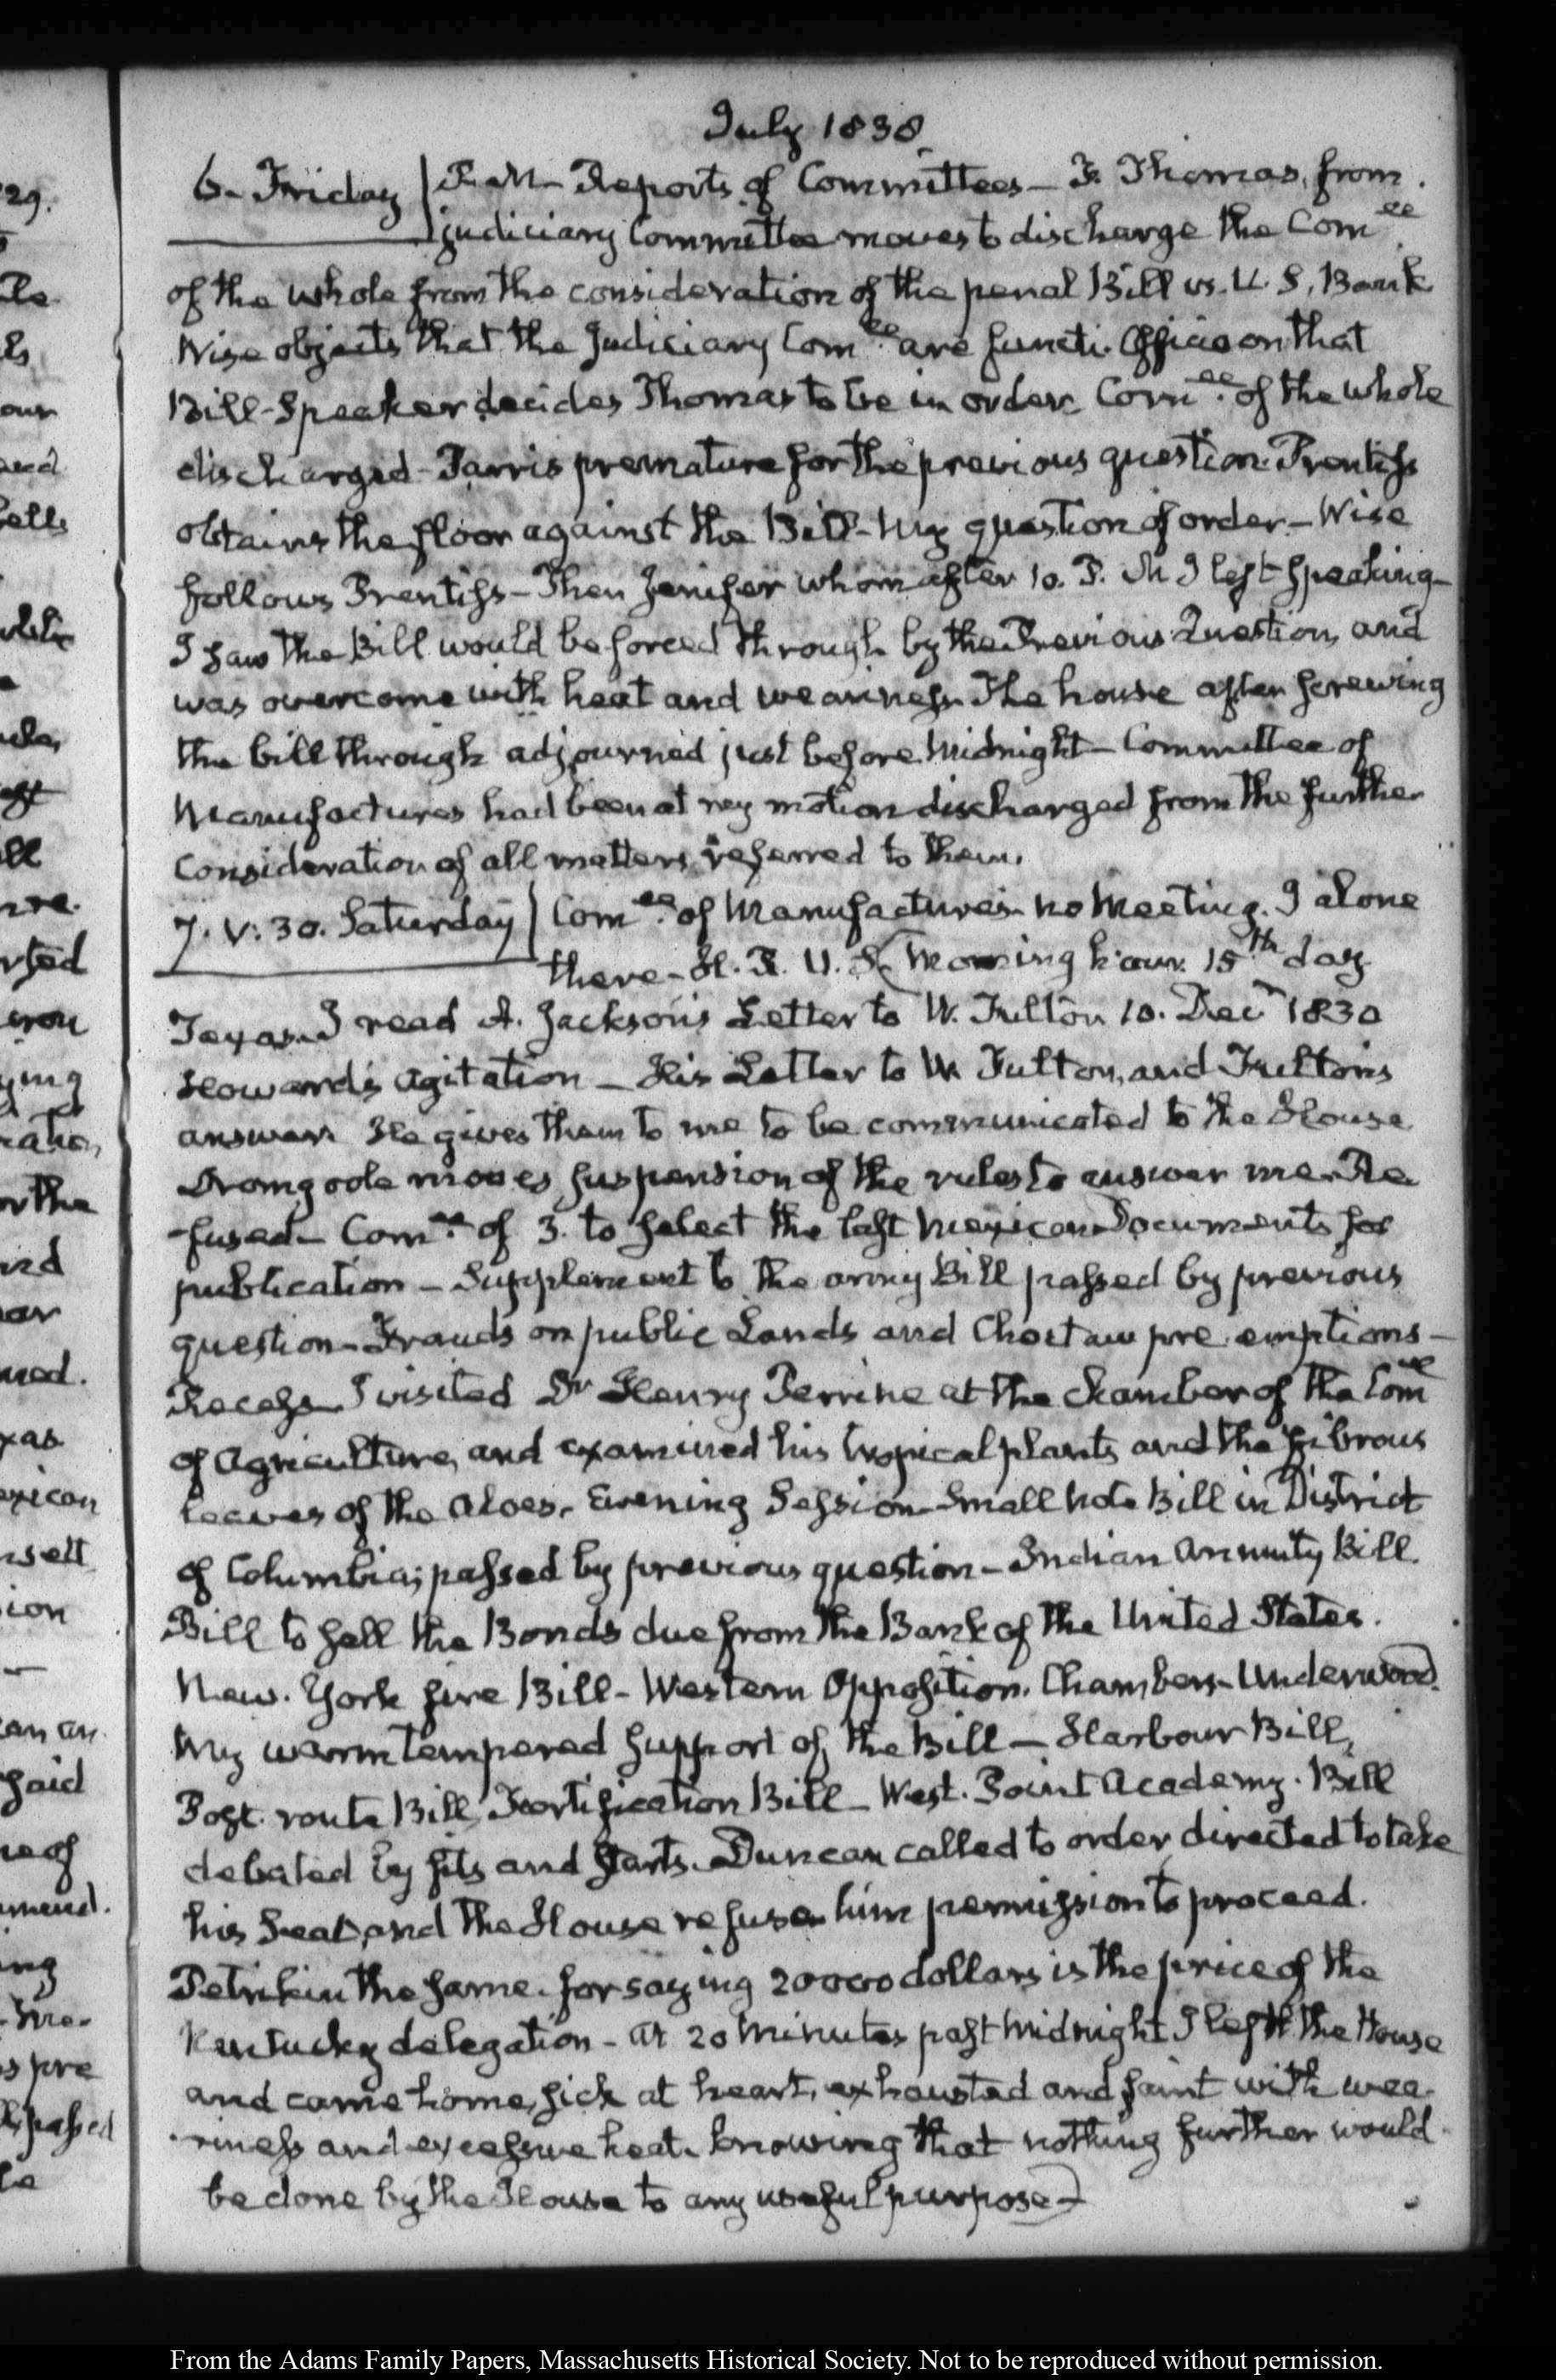 July 1838.
6. Friday P.M. Reports of Committees — F. Thomas, from
judiciary Committee moves to discharge the Com.ee
of the whole from the consideration of the penal Bill vs. U. S. Bank
Wise objects that the Judiciary Com.ee are functi Officio on that
Bill - Speaker decides Thomas to be in order. Com.ee of the whole
discharged - Parris premature for the previous question. Prentiss
obtains the floor against the Bill - My question of order - Wise
follows Prentiss - Then Jenifer whom after 10. P. M I left speaking -
I saw the Bill would be forced through by the Previous Question, and
was overcome with heat and weariness. The house after screwing
the bill through adjourned just before Midnight - Committee of
Manufactures had been at my motion discharged from the further
Consideration of all matters referred to them.
7. V: 30. Saturday Com.ee of Manufactures no Meeting. I alone
there - H. R. U. S. Morning hour. 15th day
Texas. I read A. Jackson's Letter to W. Fulton 10. Decr 1830
Howard's agitation — His Letter to W. Fulton, and Fulton's
answer. He gives them to me to be communicated to the House
Dromgoole moves suspension of the rules to answer me. Re
-fused - Com.ee of 3. to select the last Mexican Documents for
publication - Supplement to the army Bill passed by previous
question - Frauds on public Lands and Choctaw pre emptions -
Recess I visited Dr Henry Perrine at the Chamber of the Com.ee
of Agriculture, and examined his tropical plants and the fibrous
leaves of the Aloes. Evening Session - Small note Bill in District
of Columbia; passed by previous question - Indian Annuity Bill.
Bill to sell the Bonds due from the Bank of the United States.
New. York fire Bill - Western Opposition. Chambers - Underwood.
My warm tempered support of the Bill — Harbour Bill,
Post. route Bill, Fortification Bill - West. Point Academy. Bill
debated by fits and starts. Duncan called to order, directed to take
his Seat, and the House refuse him permission to proceed.
Petrikin the same. for saying 20000 dollars is the price of the
Kentucky delegation - At 20 Minutes past Midnight I left the House
and came home, sick at heart, exhausted and faint with wea
-riness and excessive heat. knowing that nothing further would
be done by the House to any useful purpose -
From the Adams Family Papers, Massachusetts Historical Society. Not to be reproduced without permission.